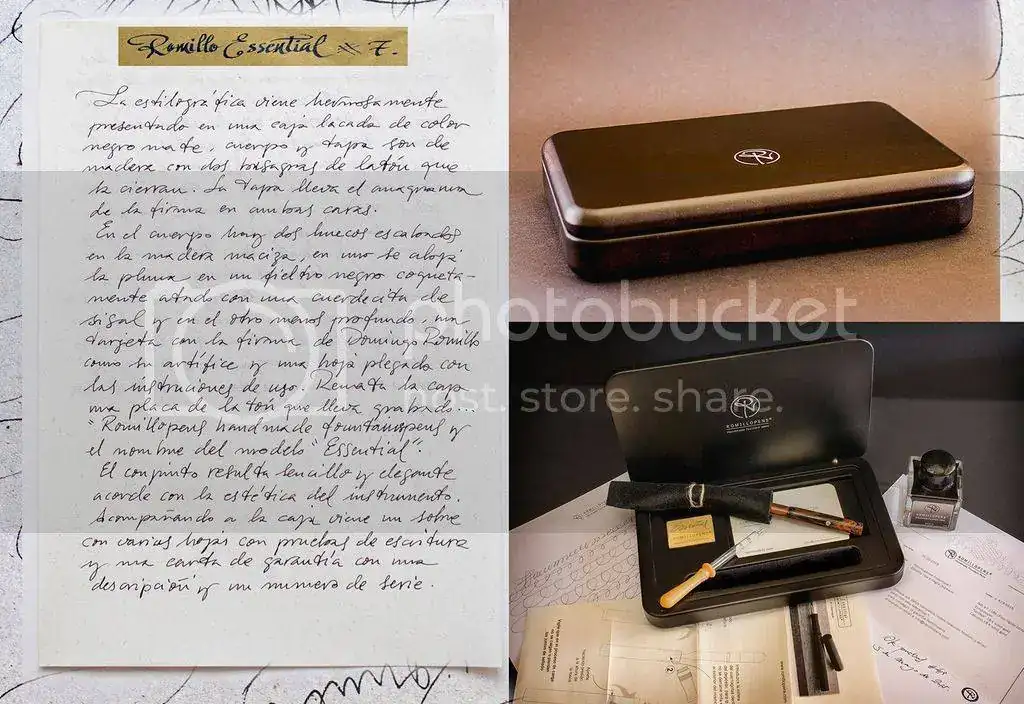 Romillo Essential # 7.
La estilográfica viene hermosamente
presentado en una caja lacada de color
negro mate, cuerpo y tapa son de
madera con dos bisagras de latón que
la cierran. La tapa lleva el anagrama
de la firma en ambas caras.
En el cuerpo hay dos huecos escalonados
en la madera maciza, en uno se aloja
la pluma en un fieltro negro coqueta-
mente atado con una cuerdecita de
sisal y en el otro menos profundo, una
targeta con la firma de Domingo Romillo
como su artífice y una hoja plegada con
las instruciones de uso. Remata la caja
una placa de latón que lleva grabado...
"Romillopens handmade fountainpens y
el nombre del modelo "Essential".
El conjunto resulta sencillo y elegante
acorde con la estética del instrumento.
Acompañando a la caja viene un sobre
con varias hojas con pruebas de escritura
y una careta de garantía con una
descripción y un numero de serie.
photobucket
host. store. share.
ROMILLOPENS
ROMILLOPENS
2